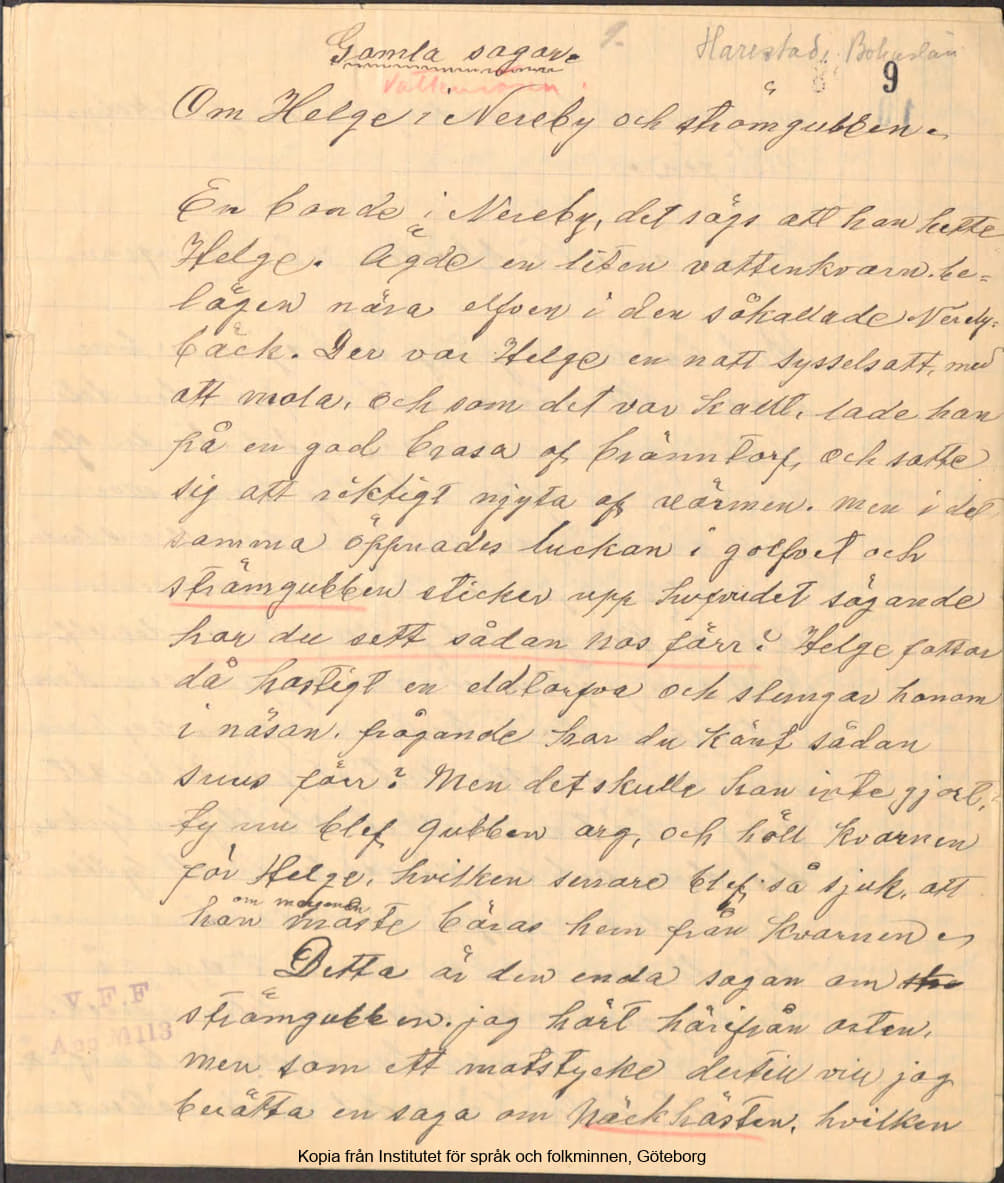 Gamla sagor.
1.
Harestad, Bohuslän
9
Vattenväsen.
Om Helge i Nereby och strömgubben.
En bonde i Nereby, det sägs att han hette
Helge. Ägde en liten vattenkvarn. be=
lägen nära elfven i den såkallade Nereby=
bäck. Der var Helge en natt sysselsatt, med
att mala, och som det var kallt, lade han
på en god brasa af bränntorf, och satte
sig att riktigt njyta af värmen. men i det
samma öppnades luckan i golfvet och
strömgubben sticker upp hufvudet sägande
har du sett sådan nos förr? Helge fattar
då hastigt en eldtorfva och slungar honom
i näsan, frågande har du känt sådan
snus förr? Men det skulle han inte gjort,
ty nu blef gubben arg, och höll kvarnen
för Helge, hvilken senare blef så sjuk, att
om morgonen
han måste bäras hem från kvarnen.
Detta är den enda sagan om
strömgubben. jag hört härifrån orten,
men som ett motstycke dertill vill jag
berätta en saga om Näckhästen, hvilken
V.F.F
Acc. N:113
Kopia från Institutet för språk och folkminnen, Göteborg